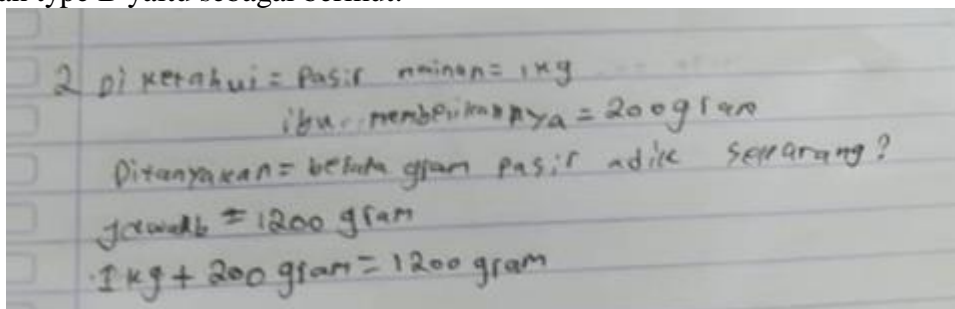 an type B yaitu sebagai berikut:
2 Di ketahui = Pasir mainan = 1 kg
ibu memberikannya = 200 gram
Ditanyakan = berapa gram pasir adik sekarang?
jawab = 1200 gram
1 kg + 200 gram = 1200 gram